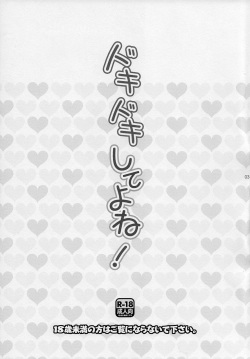 ドキドキしてよね!
R-18
成人向
18歳未満の方はご覧にならないで下さい。
03